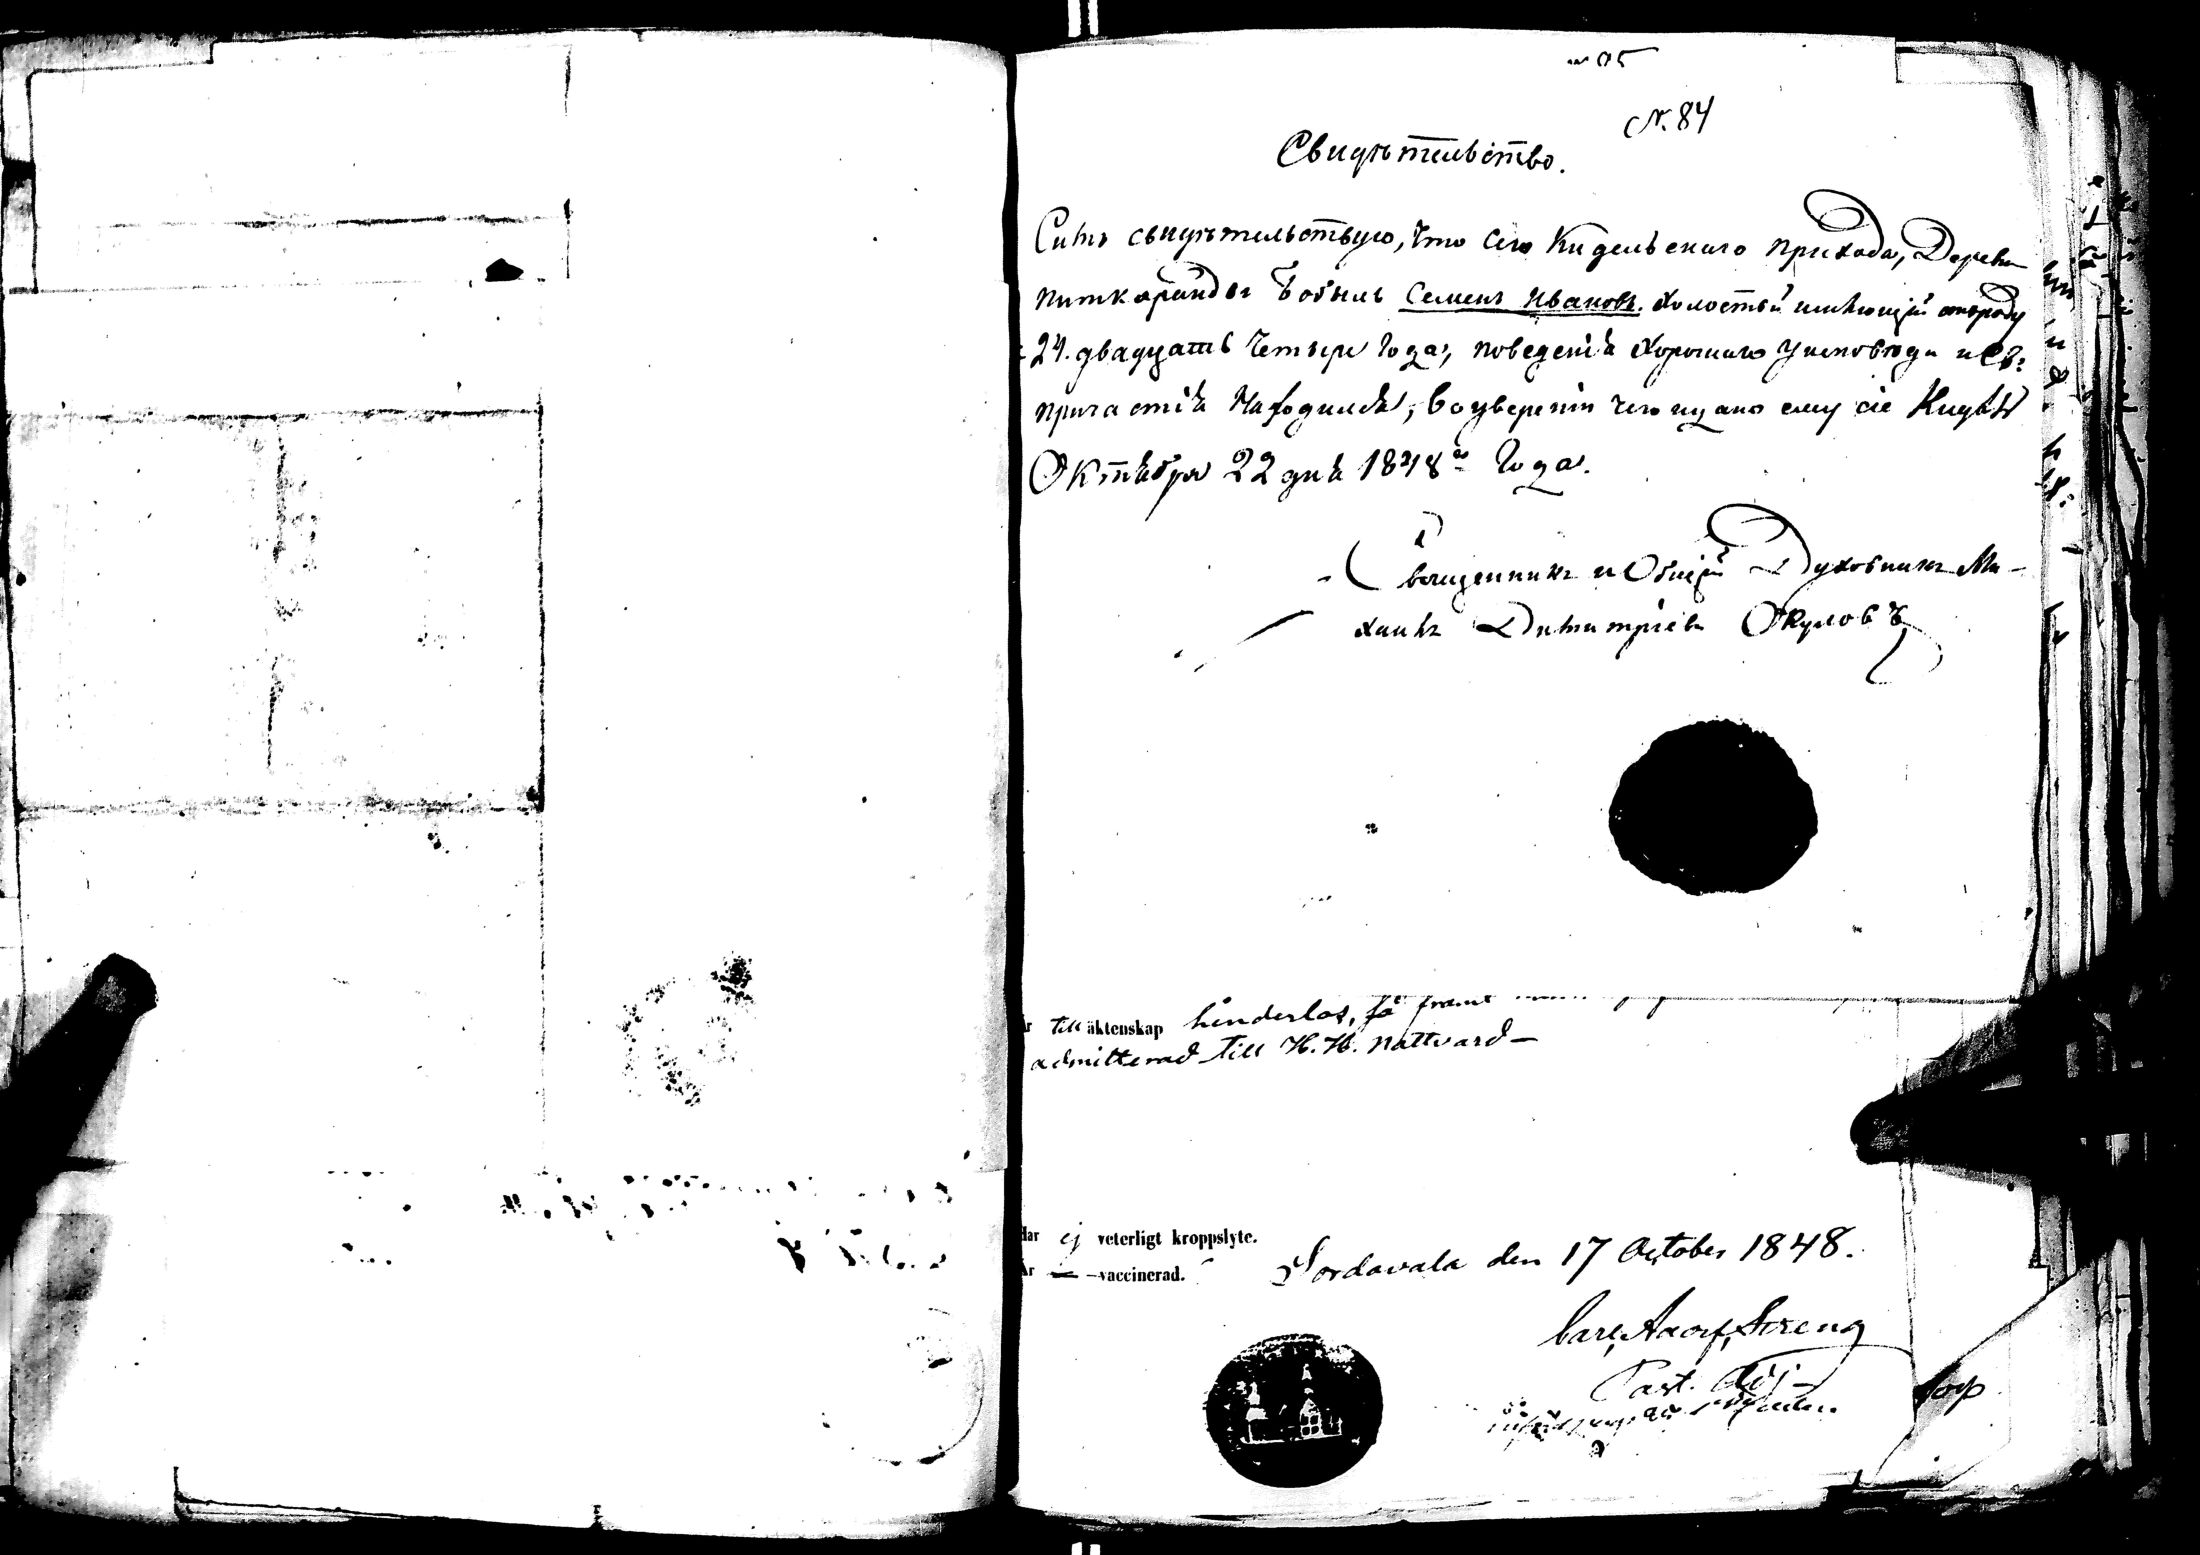 N. 84
Свидѣтельство.
Симъ свидѣтельствую, что сего Кидельскаго прихода, Деревни
питкаранды Бобыль Семенъ Ивановъ. холостый имѣющій отроду
24. двадцать четыре года, поведенія хорошаго у исповѣди и Св:
причастія находился, во увереніи чего и дано ему сіе Кидѣль
Октября 22 дня 1848го года.
Священникъ и Общій Духовникъ Ми-
хаилъ Димитріевъ Окуловъ
är till äktenskap hinderlös, så framt
admitterad till H. H. Nattvard –
Har ej veterligt kroppslyte.
Är — vaccinerad.
Sordavala den 17 October 1848.
Carl Adolf Streng
Past. Adj.